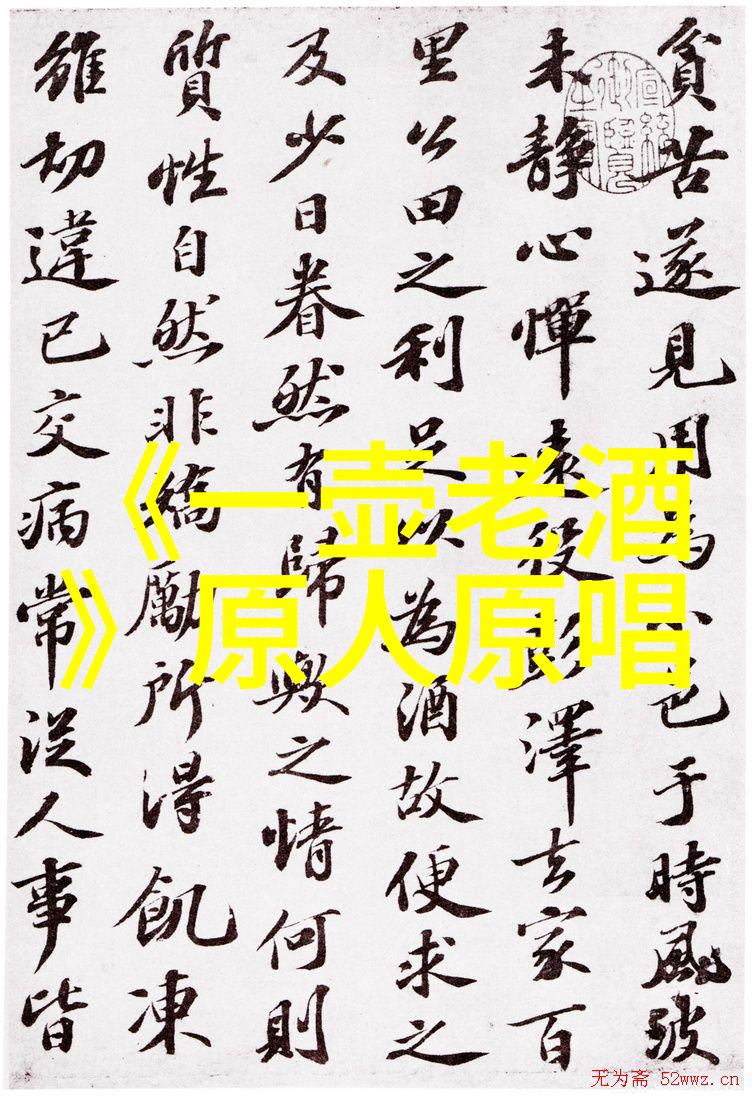 貧苦遂見用為小邑于時風波
未靜心憚遠役彭澤去家百
里公田之利足以為酒故便求之
及少日眷然有歸歟之情何則
質性自然非矯勵所得飢凍
雖切違己交病常從人事皆
《一壶老酒
》原人原唱
无为斋 52wwz.cn